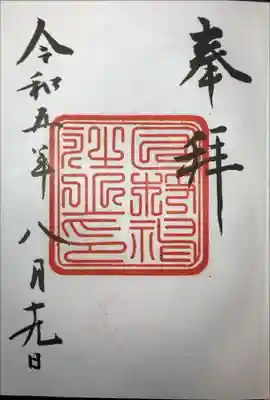 奉拝
令和五年八月十九日